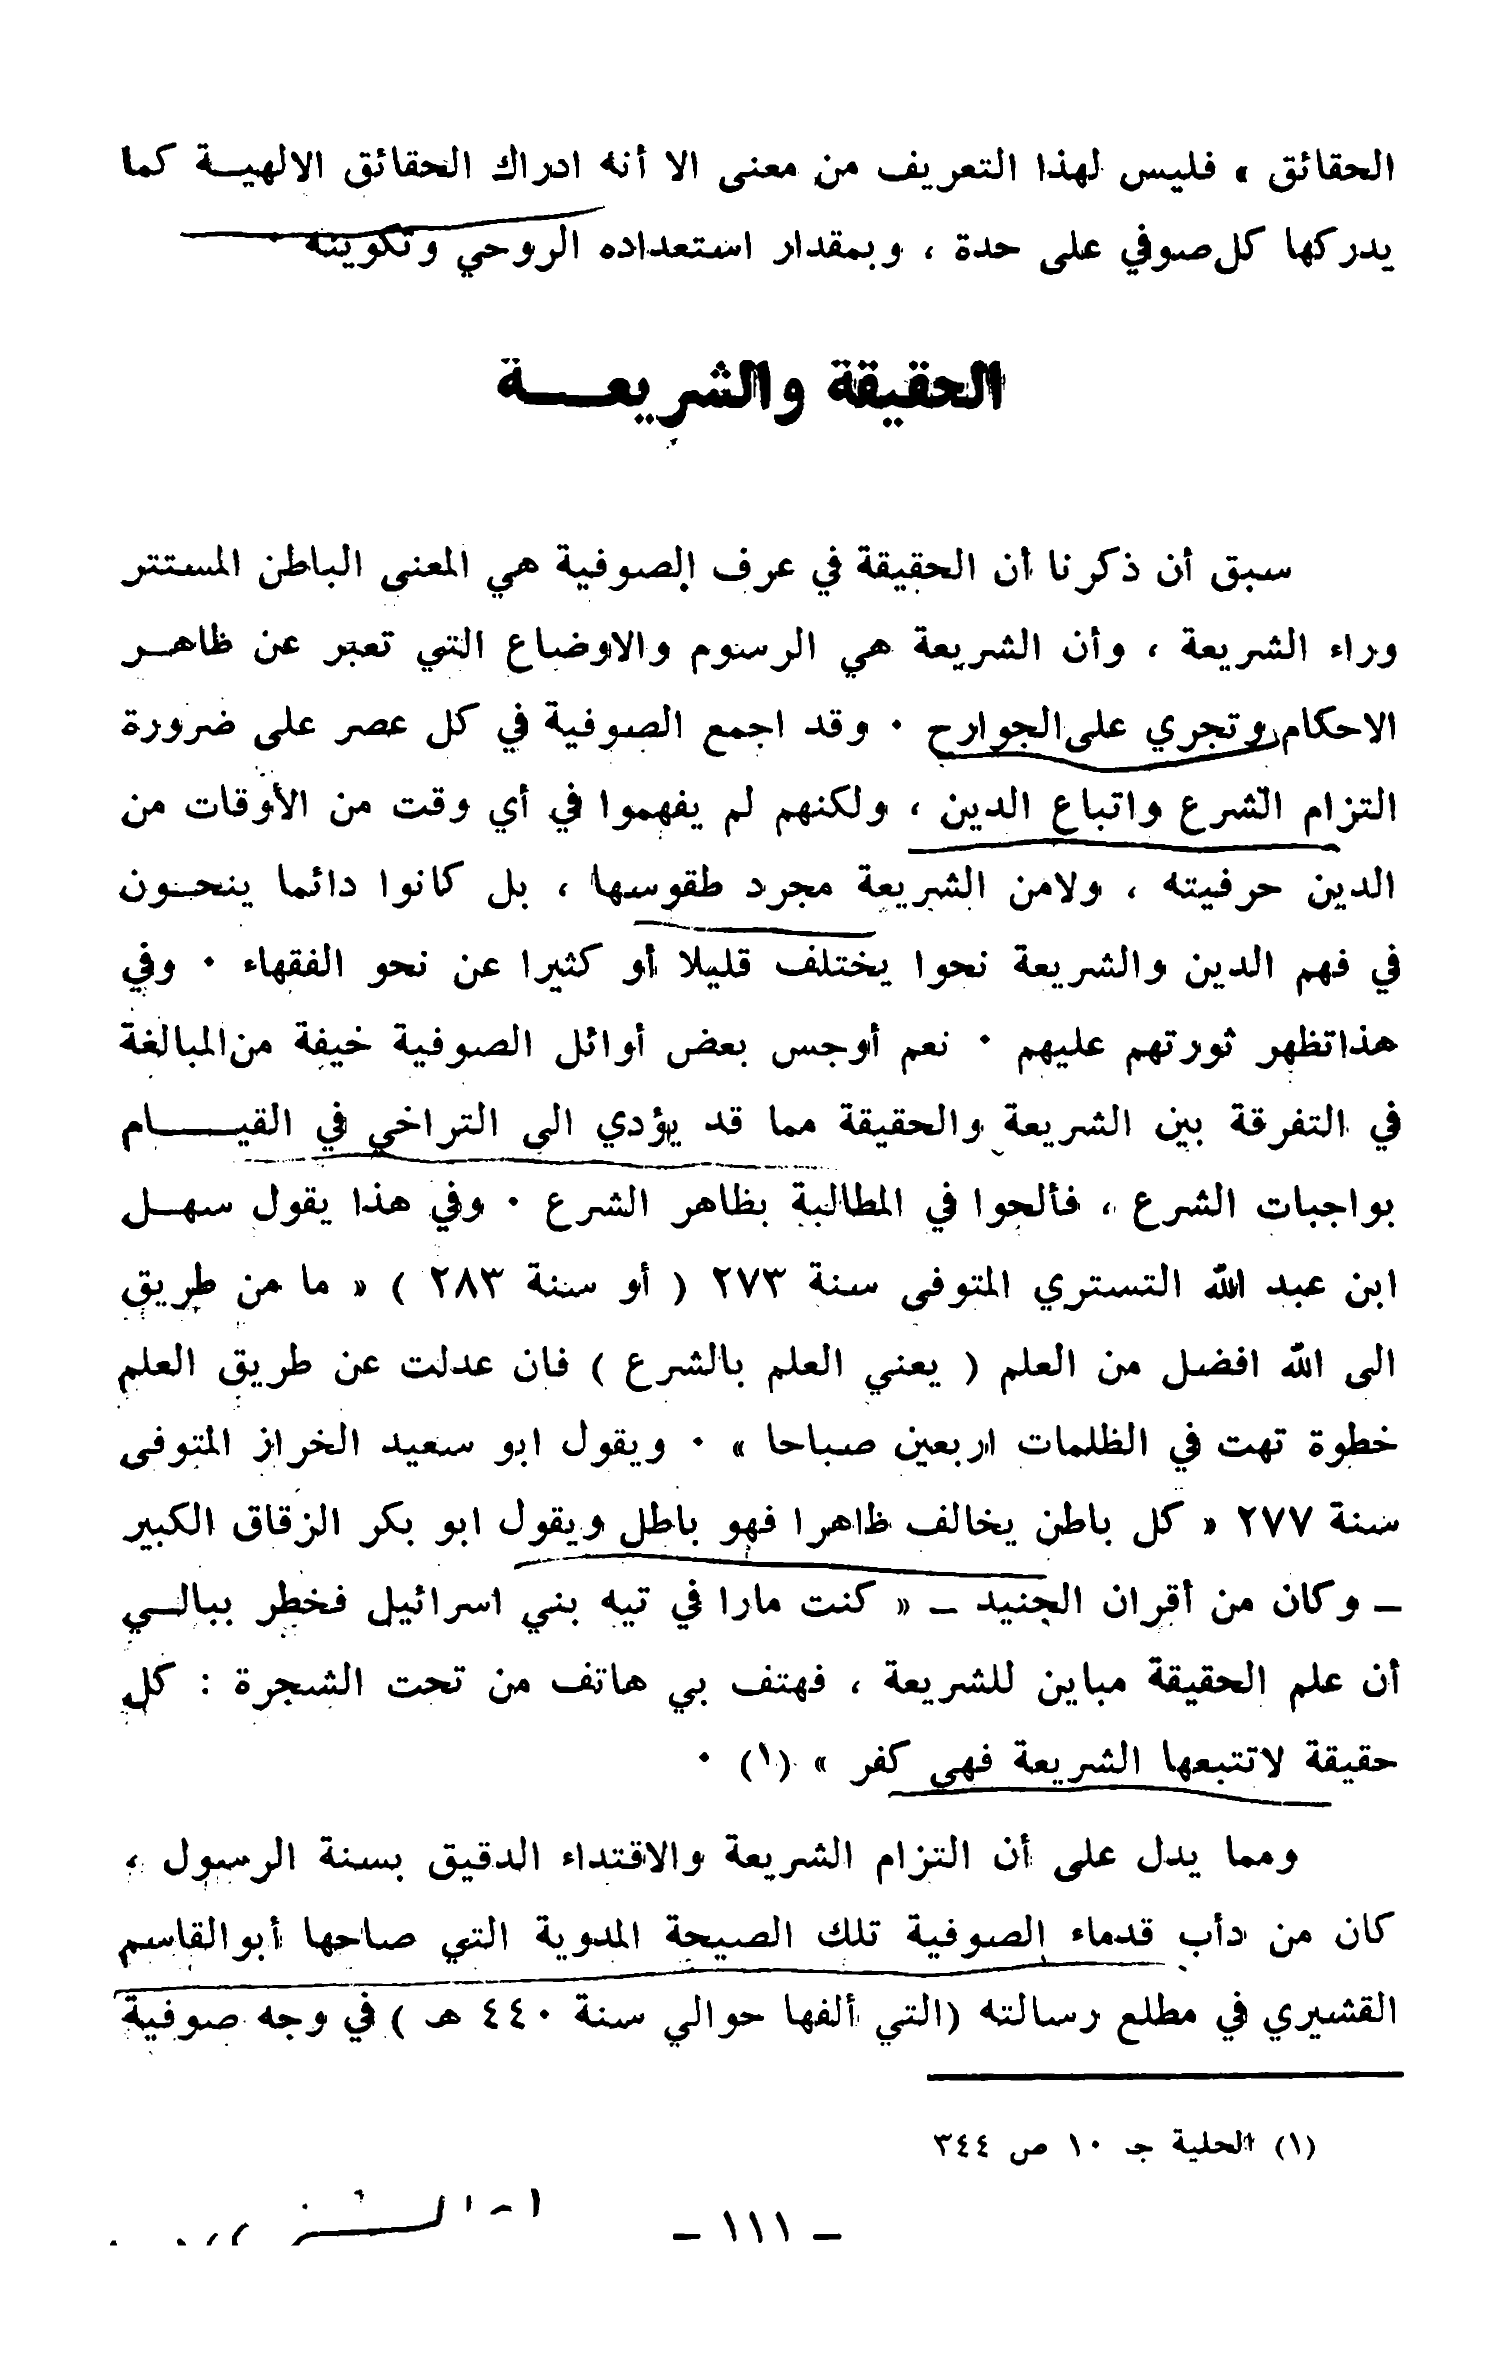 الحقائق » فليس لهذا التعريف من معنى الا أنه ادراك الحقائق الالهيــة كما
يدركها كل صوفي على حدة ، وبمقدار استعداده الروحي وتكوينه ٠
الحقيقة والشريعــــة
سبق أن ذكرنا أن الحقيقة في عرف الصوفية هي المعنى الباطن المستتر
وراء الشريعة ، وأن الشريعة هي الرسوم والاوضاع التي تعبر عن ظاهــر
الاحكام وتجري على الجوارح ٠ وقد اجمع الصوفية في كل عصر على ضرورة
التزام الشرع واتباع الدين ، ولكنهم لم يفهموا في أي وقت من الأوقات من
الدين حرفيته ، ولامن الشريعة مجرد طقوسها ، بل كانوا دائما ينحــون
في فهم الدين والشريعة نحوا يختلف قليلا أو كثيرا عن نحو الفقهاء ٠ وفي
هذاتظهر ثورتهم عليهم ٠ نعم أوجس بعض أوائل الصوفية خيفة من المبالغة
في التفرقة بين الشريعة والحقيقة مما قد يؤدي الى التراخي في القيــــام
بواجبات الشرع ، فألحوا في المطالبة بظاهر الشرع ٠ وفي هذا يقول سهــل
ابن عبد الله التستري المتوفى سنة ٢٧٣ ( أو سنة ٢٨٣ ) « ما من طريق
الى الله افضل من العلم ( يعني العلم بالشرع ) فان عدلت عن طريق العلم
خطوة تهت في الظلمات اربعين صباحا » ٠ ويقول ابو سعيد الخراز المتوفى
سنة ٢٧٧ « كل باطن يخالف ظاهرا فهو باطل ويقول ابو بكر الزقاق الكبير
ــ وكان من أقران الجنيد ــ « كنت مارا في تيه بني اسرائيل فخطر ببالــي
أن علم الحقيقة مباين للشريعة ، فهتف بي هاتف من تحت الشجرة : كل
حقيقة لاتتبعها الشريعة فهي كفر » (١) ٠
ومما يدل على أن التزام الشريعة والاقتداء الدقيق بسنة الرسول ،
كان من دأب قدماء الصوفية تلك الصيحة المدوية التي صاحها أبو القاسم
القشيري في مطلع رسالته (التي ألفها حوالي سنة ٤٤٠ هـ ) في وجه صوفية
(١) الحلية جـ ١٠ ص ٣٤٤
ــ ١١١ ــ